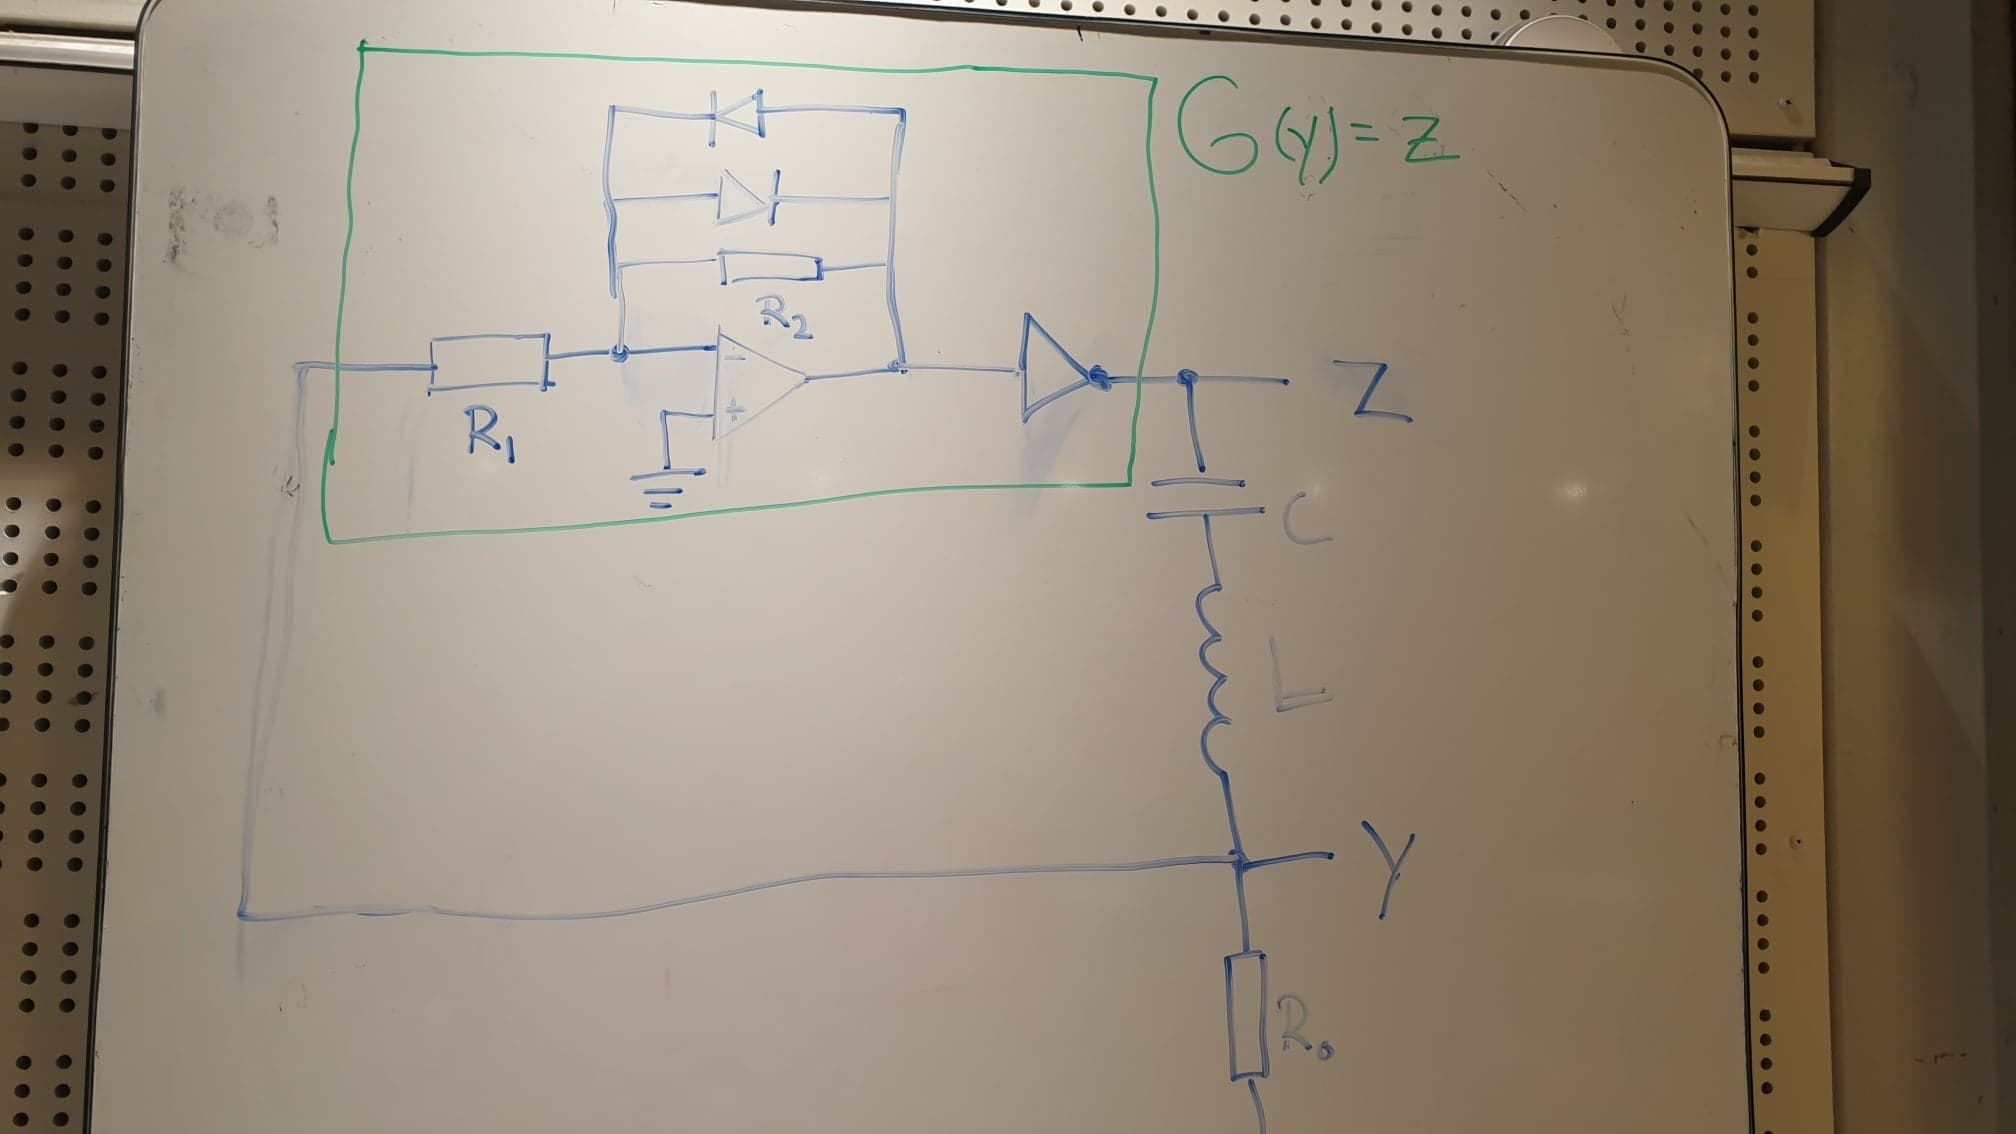 G(y)=z
R2
-
+
R1
Z
C
L
Y
R0